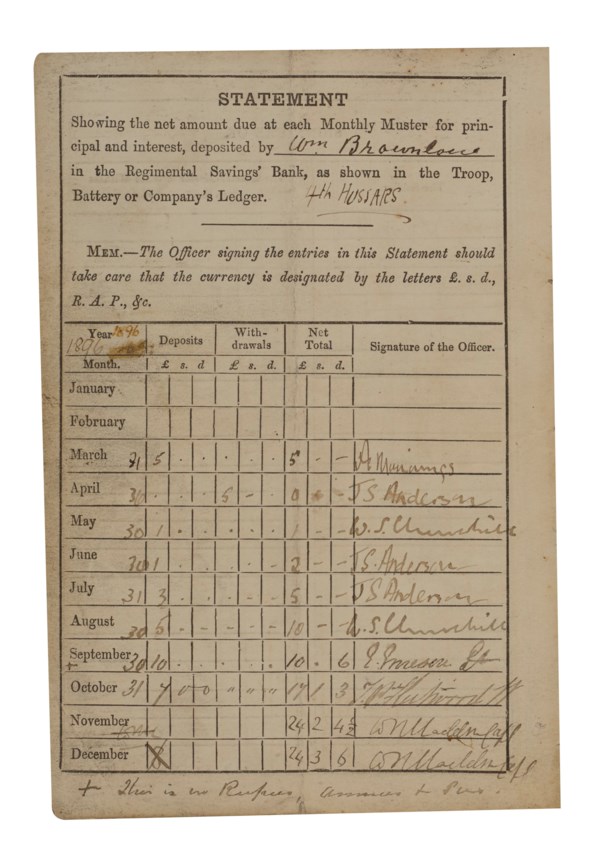 STATEMENT
Showing the net amount due at each Monthly Muster for prin-
cipal and interest, deposited by Wm Brownlowe
in the Regimental Savings' Bank, as shown in the Troop,
Battery or Company's Ledger. 4th HUSSARS.
MEM.—The Officer signing the entries in this Statement should
take care that the currency is designated by the letters £. s. d.,
R. A. P., &c.
Year 1896 Deposits With- Net Signature of the Officer.
1896 drawals Total
Month. £ s. d £ s. d. £ s. d.
January
February
March 31 5 . . . . . 5 - -
April 30 . . . 5 - . 0 . - JS Anderson
May 30 1 . . . . . 1 - - W. S. Churchill
June 30 1 . . . . . 2 - - JS. Anderson
July 31 3 . . . . . 5 - - JS Anderson
August 30 5 . . . . . 10 - - W. S. Churchill
September 30 10 . . . . . 10 . 6
+
October 31 7 0 0 " " " 17 1 3
November 24 2 4½
December 24 3 6
+ This is in Rupees, Annas & Pies.